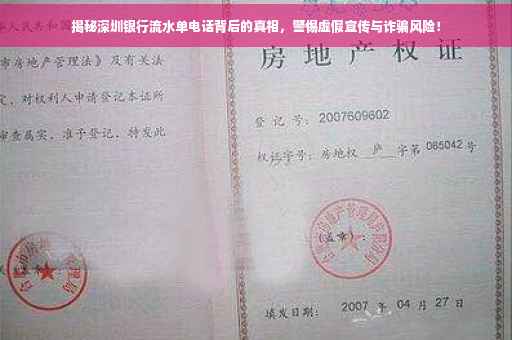 揭秘深圳银行流水单电话背后的真相，警惕虚假宣传与诈骗风险！
华人民共和国
市房地产管理法》及有关
定，对权利人申请登记本证所
审查属实，准予登记，特发此
房地产权证
登记号：2007609602
权证字号：房地权 庐 字第 085042 号
(盖章)：
填发日期：2007 年 04 月 27 日